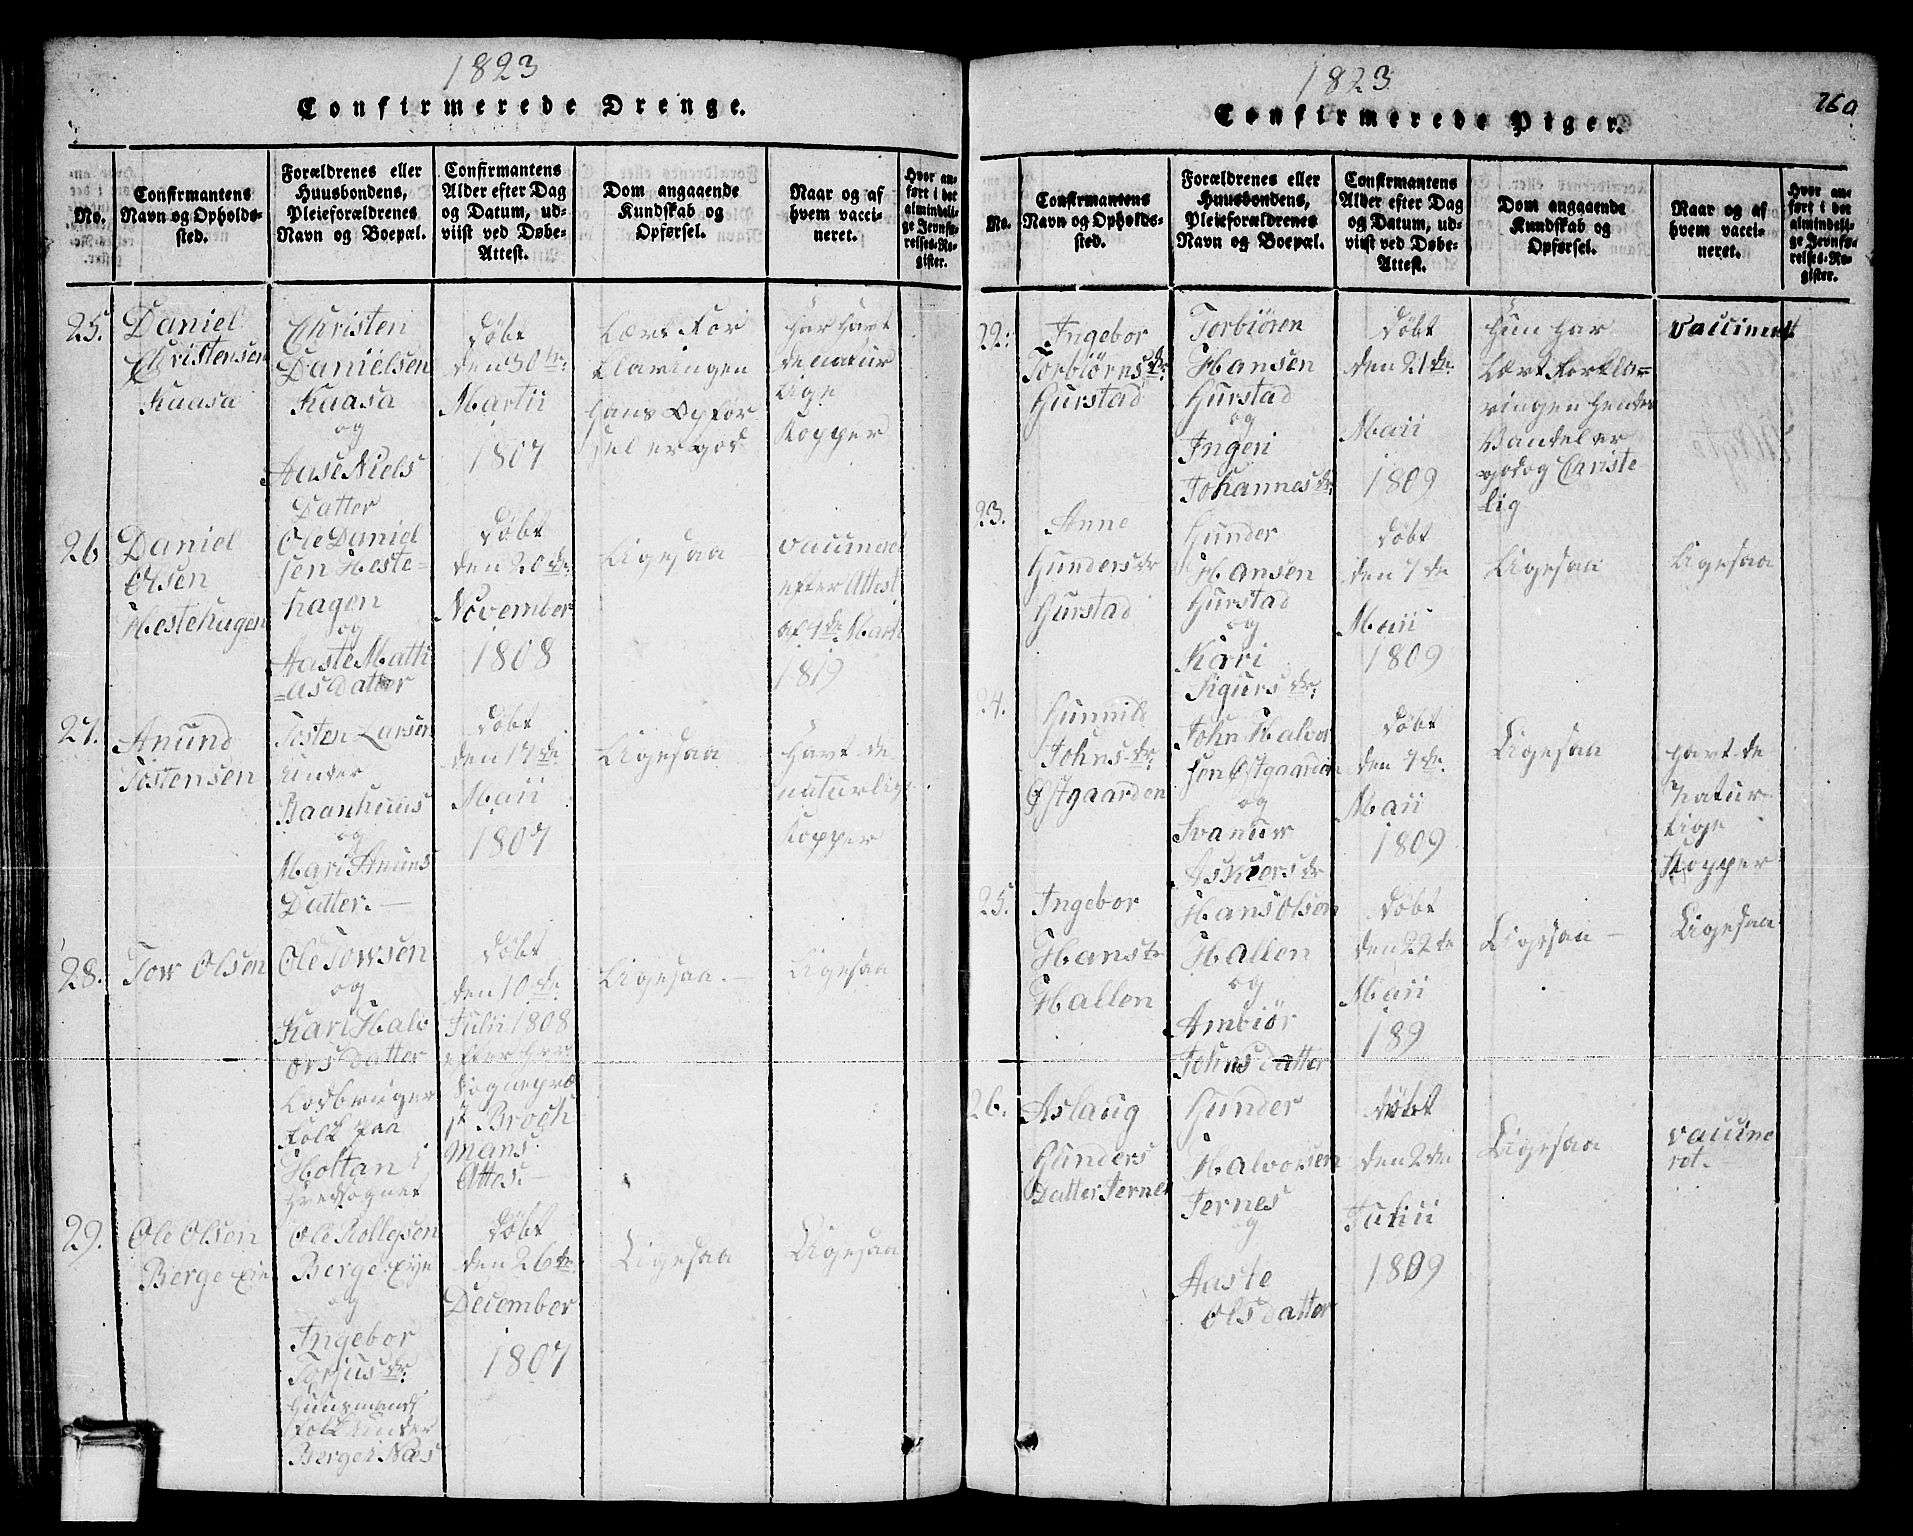 1823
Confirmerede Drenge.
No.
Confirmantens
Navn og Opholds-
sted.
Forældrenes eller
Huusbondens,
Pleieforældrenes
Navn og Boepæl.
Confirmantens
Alder efter Dag
og Datum, ud-
viist ved Døbe-
Attest.
Dom angaaende
Kundskab og
Opførsel.
Naar og af
hvem vacci-
neret.
Hvor an-
ført i det
almindeli-
ge Jevnfø-
relses-Re-
gister.
25.
Daniel
Christensen
Kaasa
Christen
Danielsen
Kaasa
og
Aase Niels
Datter
døbt
den 30te
Martii
1807
Lært For
klaringen
hans Opför
sel er god
har havt
de natur
lige
Kopper
26
Daniel
Olsen
Hestehagen
Ole Daniel
sen Heste-
hagen
og
Aaste Matti
-asdatter
døbt
den 20de
November
1808
Ligesaa
vaccineret
efter Attest
af 4de Marti
1819
27.
Anund
Tostensen
Tosten Larsen
under
Baanhuus
og
Mari Anuns
Datter.-
døbt
den 17de
Maii
1807
Ligesaa
havt de
naturlige
Kopper
28.
Tow Olsen
Ole Towsen
og
Kari Halv
orsdatter
Losbruger
folk paa
Holtan i
Hvedsognet
døbt
den 10de
Julii 1808
efter her
Sognepræ
st Broch
mans
Attes.-
Ligesaa.-
Ligesaa
29.
Ole Olsen
Berge eie
Ole Rollefsen
Berge eye
og
Ingebor
Torjusdr.
Huusmands
folk under
Berge i Næs
døbt
den 26de
December
1807
Ligesaa
Ligesaa
1823
260
Confirmerede Piger.
No.
Confirmantens
Navn og Opholds-
sted.
Forældrenes eller
Huusbondens,
Pleieforældrenes
Navn og Boepæl.
Confirmantens
Alder efter Dag
og Datum, ud-
viist ved Døbe-
Attest.
Dom angaaende
Kundskab og
Opførsel.
Naar og af
hvem vacci-
neret.
Hvor an-
ført i det
almindeli-
ge Jevnfø-
relses-Re-
gister.
22.
Ingebor
Torbiörnsdr.
Gurstad
Torbiören
Hansen
Gurstad
og
Ingeri
Johannesdr.
døbt
den 21de
Maii
1809
Hun har
Lært Forkla-
ringen hendes
Vandel er
god og Christe
lig
vaccineret
23.
Anne
Gundersdr
Gurstad
Gunder
Hansen
Gurstad
og
Kari
Sigursdr.
døbt
den 7de
Maii
1809
Ligesaa
Ligesaa
24.
Gunnild
Johnsdr.
Østgaarden
John Halvor
sen Østgaarden
og
Svanuw
Askiersdr
døbt
den 7de
Maii
1809
Ligesaa
havt de
Natur
lige
Kopper
25.
Ingebor
Hansdr
Hallen
Hans Olsen
Hallen
og
Ambiör
Johnsdatter
døbt
den 22de
Maii
189
Ligesaa -
Ligesaa
26.
Aslaug
Gunders
Datter Jernes
Gunder
Halvorsen
Jernes
og
Aaste
Olsdatter
døbt
den 2den
Julii
1809
Ligesaa
vaccine
ret.-